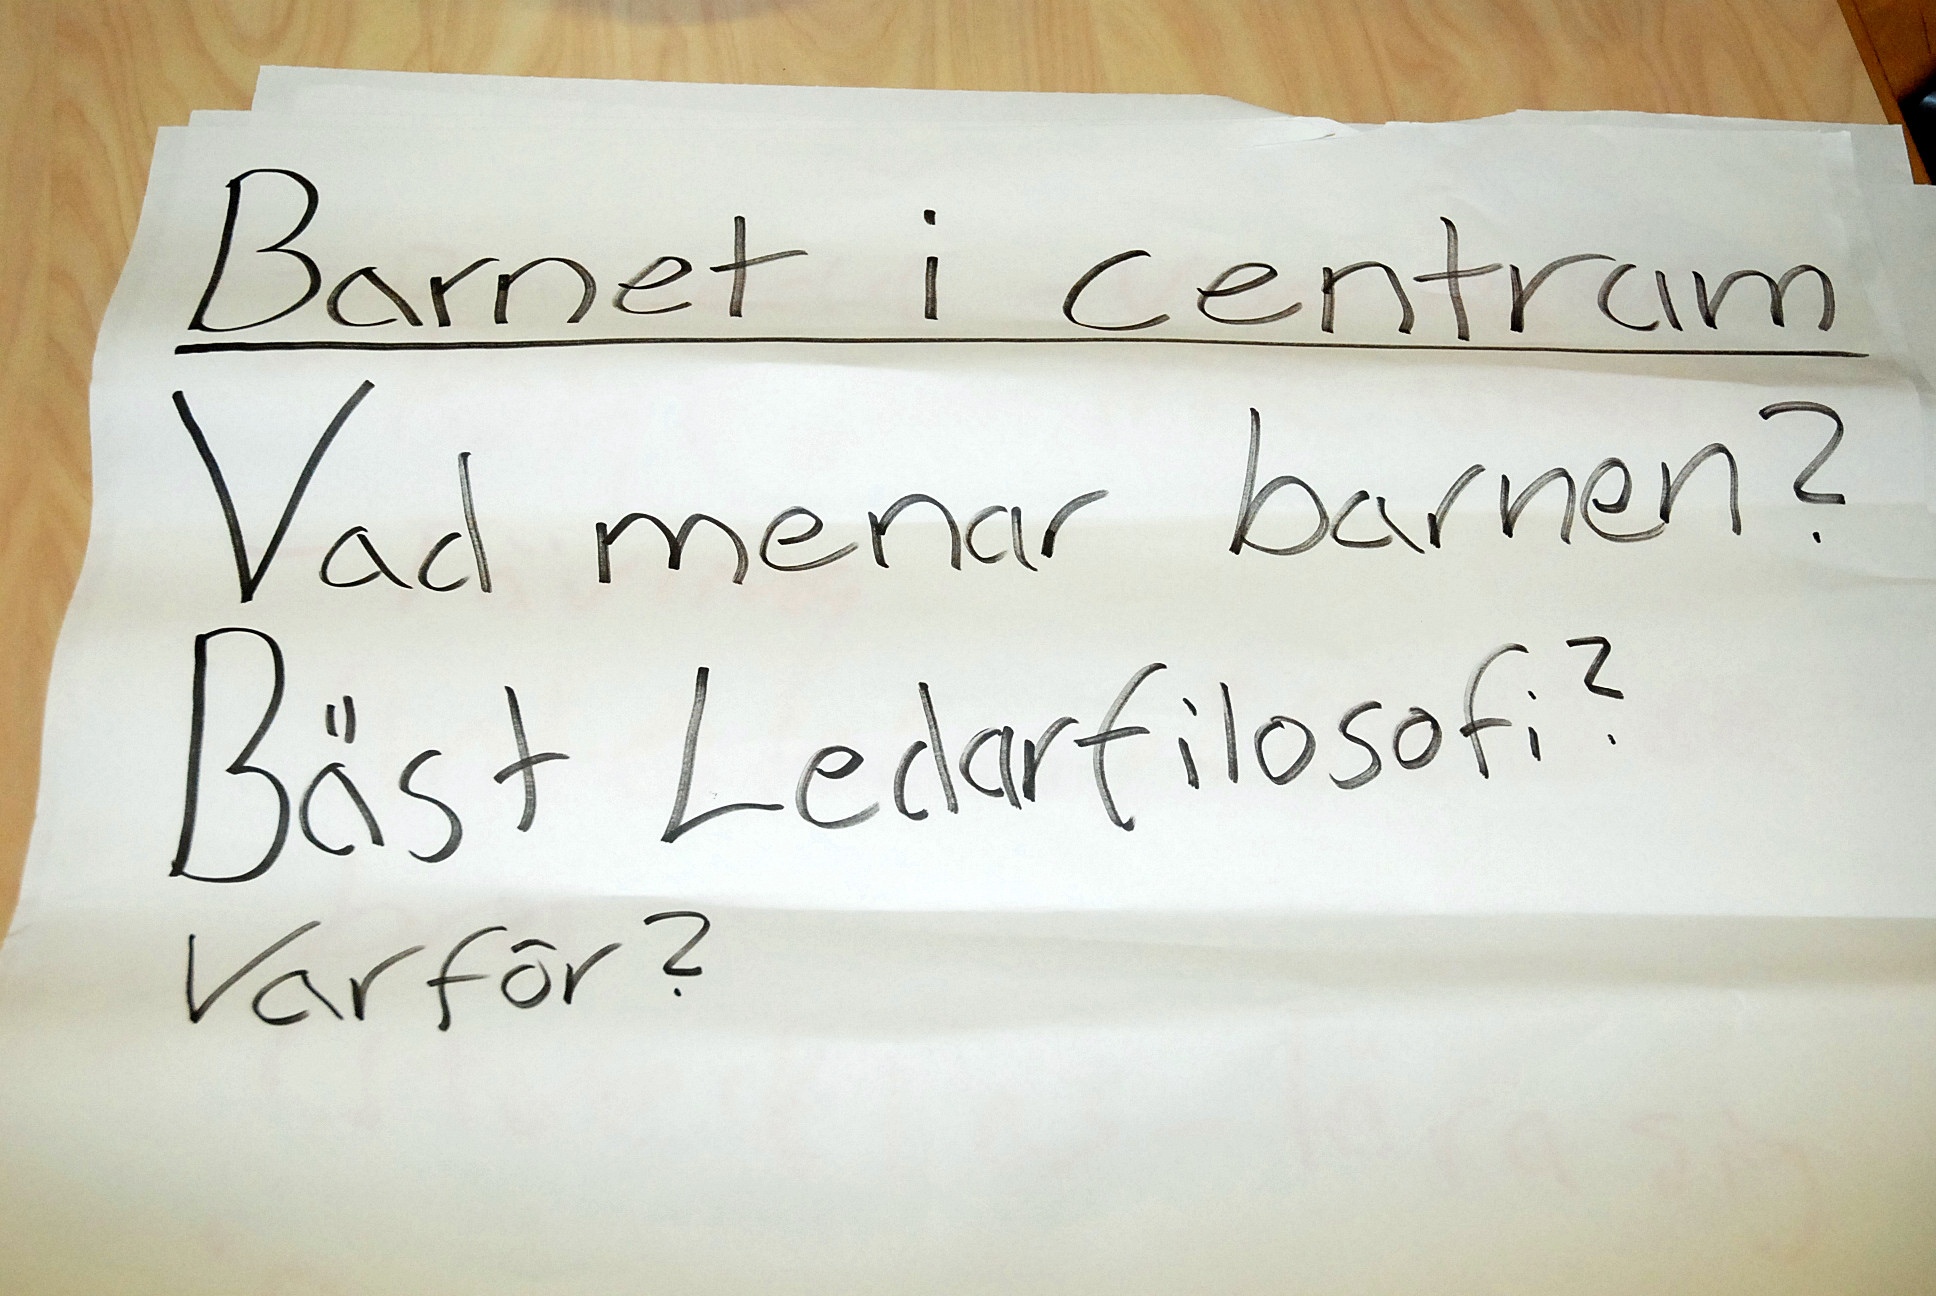 Barnet i centrum
Vad menar barnen?
Bäst Ledarfilosofi?
Varför?